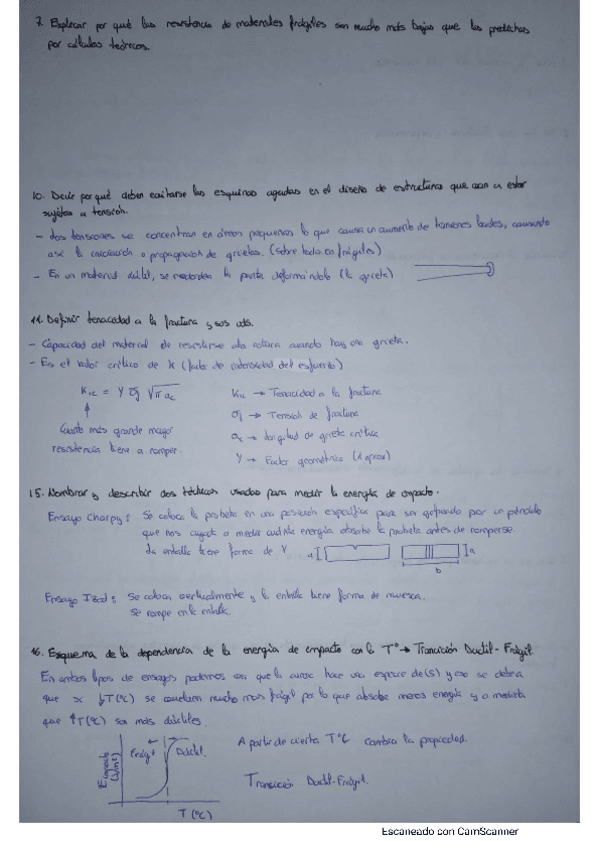 7. Explicar por qué las resistencia de materiales frágiles son mucho más bajas que las predichas
por cálculos teóricos.
10. Decir por qué deben evitarse las esquinas agudas en el diseño de estructuras que van a estar
sujetas a tensión.
- Las tensiones se concentran en áreas pequeñas lo que causa un aumento de tensiones locales, causando
así la iniciación o propagación de grietas. (sobre todo en frágiles)
- En un material dúctil, se redondea la punta deformándola (la grieta)
11. Definir tenacidad a la fractura y sus uds.
- Capacidad del material de resistirse a la rotura cuando hay una grieta.
- Es el valor crítico de K (factor de intensidad del esfuerzo)
K_IC = Y σf √π ac
K_IC → Tenacidad a la fractura
σf → Tensión de fractura
Cuanto más grande mayor
ac → longitud de grieta crítica
resistencia tiene a romper.
Y → Factor geométrico (1 aprox)
15. Nombrar y describir dos técnicas usadas para medir la energía de impacto.
Ensayo Charpy: Se coloca la probeta en una posición específica para ser golpeada por un péndulo
que nos ayuda a medir cuánta energía absorbe la probeta antes de romperse.
La entalla tiene forma de V
a
a
b
Ensayo Izod: Se colocan verticalmente y la entalla tiene forma de muesca.
Se rompe en la entalla.
16. Esquema de la dependencia de la energía de impacto con la Tº → Transición Dúctil-Frágil
En ambos tipos de ensayos podemos ver que la curva hace una especie de (S) y eso se debe a
que si ↓T(ºC) se vuelven mucho más frágil por lo que absorbe menos energía y a medida
que ↑T(ºC) son más dúctiles.
Frágil
Dúctil.
A partir de cierta TºC cambia la propiedad.
E impacto
(J/m²)
Transición Dúctil-Frágil.
T (ºC)
Escaneado con CamScanner